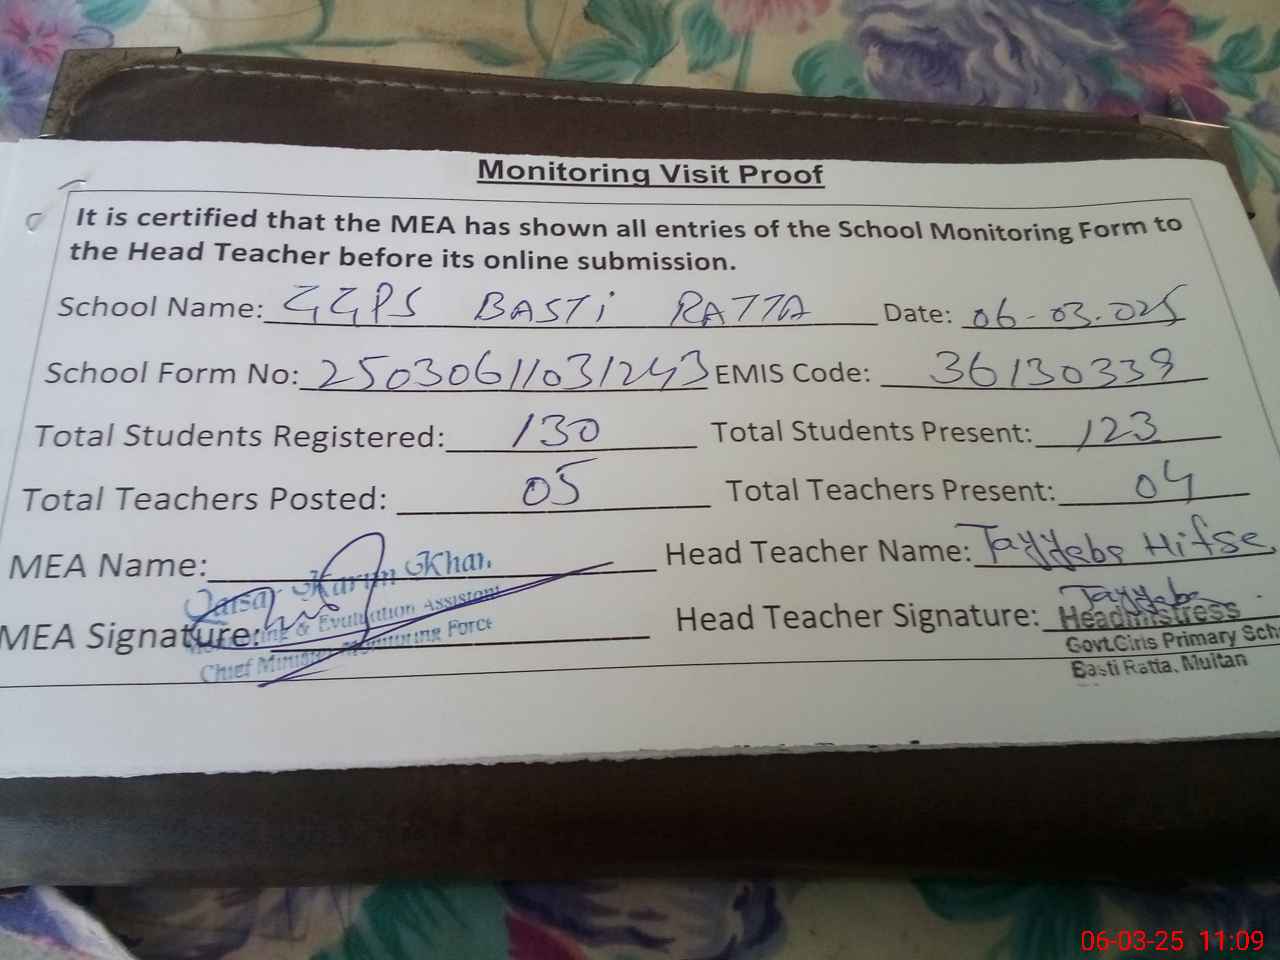 Monitoring Visit Proof
It is certified that the MEA has shown all entries of the School Monitoring Form to
the Head Teacher before its online submission.
School Name: GGPS BASTi RATTA Date: 06-03.025
School Form No: 25030611031243 EMIS Code: 36130339
Total Students Registered: 130 Total Students Present: 123
Total Teachers Posted: 05 Total Teachers Present: 04
MEA Name: Head Teacher Name: Tayyaba Hifse
Qaisar Karim Khan
MEA Signature: Head Teacher Signature: Tayyaba
Monitoring & Evaluation Assistant
Chief Minister Monitoring Force
Headmistress
Govt.Girls Primary Sch
Basti Ratta, Multan
06-03-25 11:09